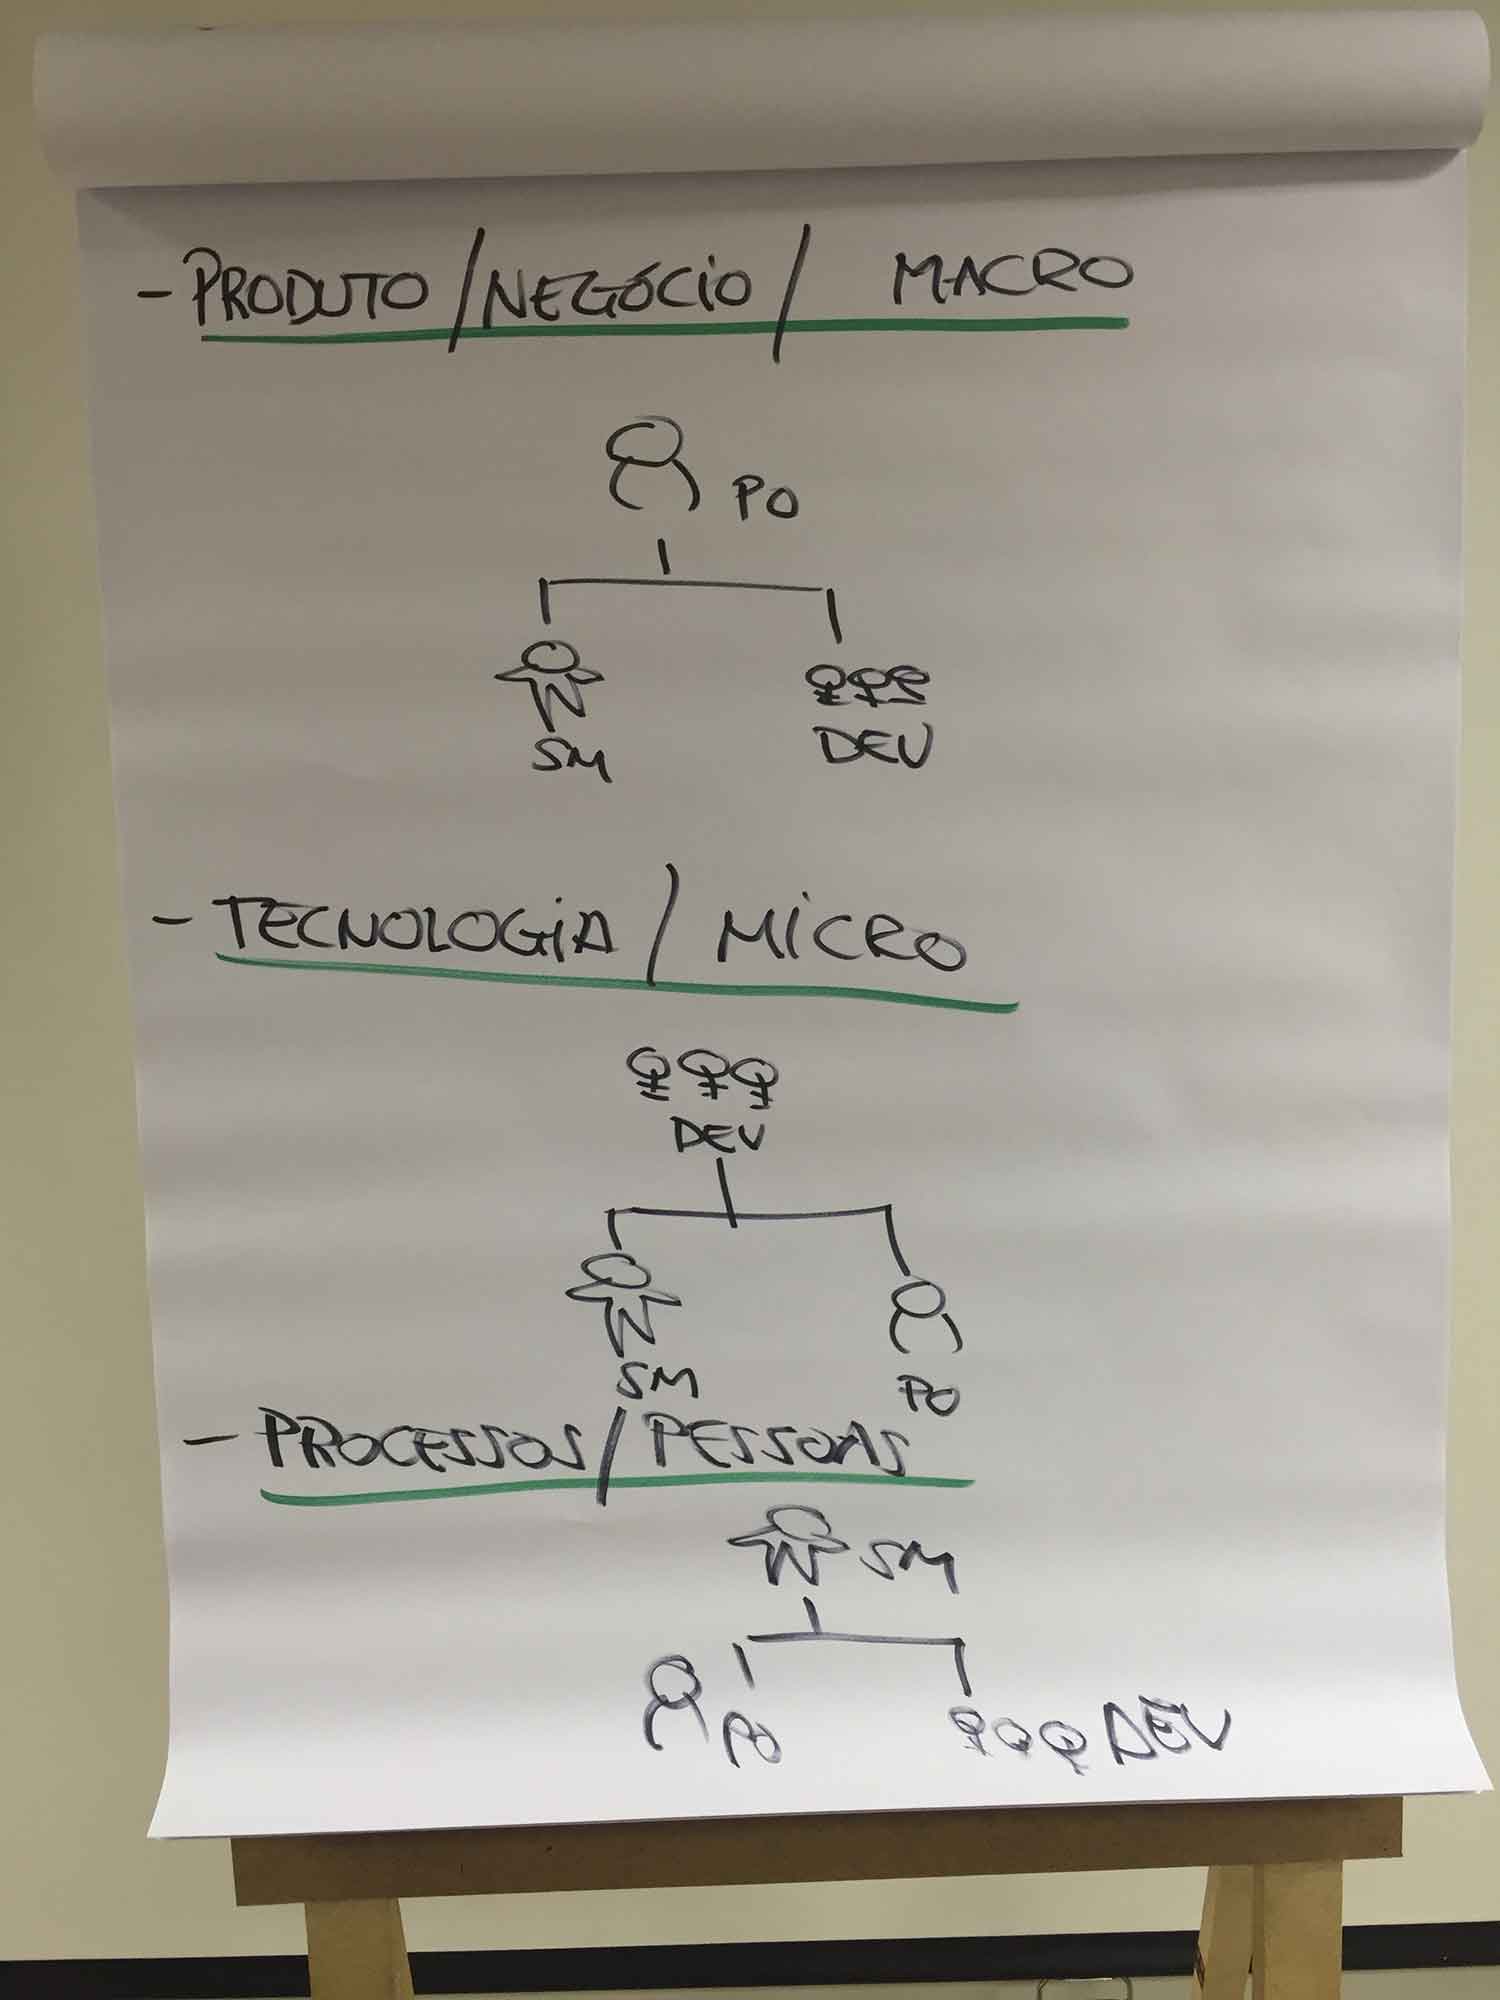 - PRODUTO / NEGÓCIO / MACRO
PO
SM
DEV
- TECNOLOGIA / MICRO
DEV
SM
PO
- PROCESSOS / PESSOAS
SM
PO
DEV